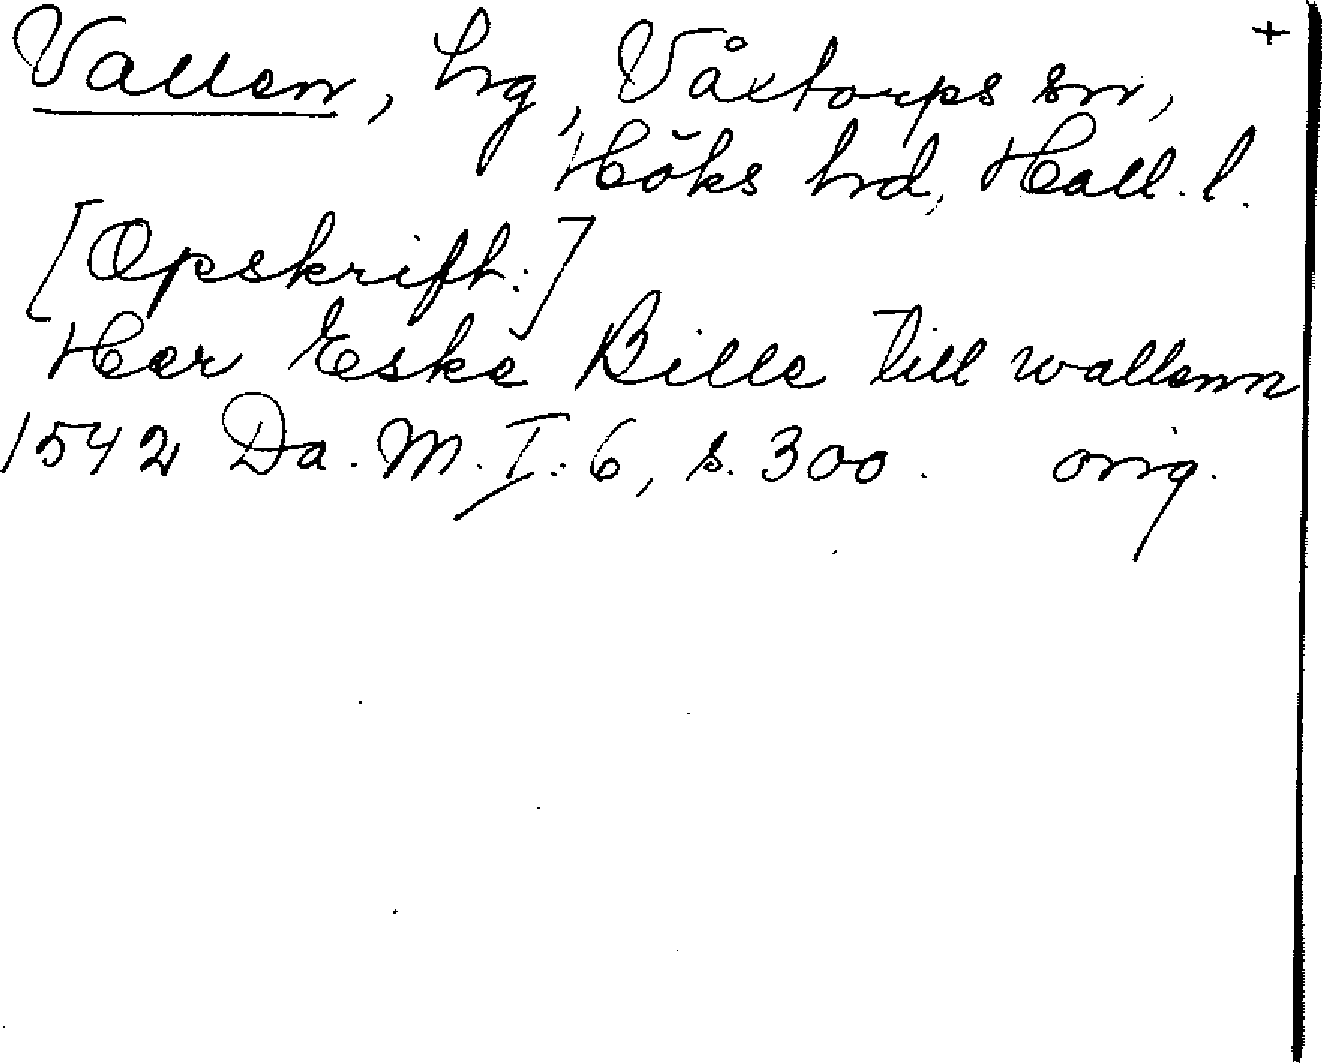 Vallen, hrg, Våxtorps sn, +
Höks hrd, Hall. l.
[Opskrift:]
Her Eske Bille till wallenn
1542 Da. M. I: 6, s. 300. orig.